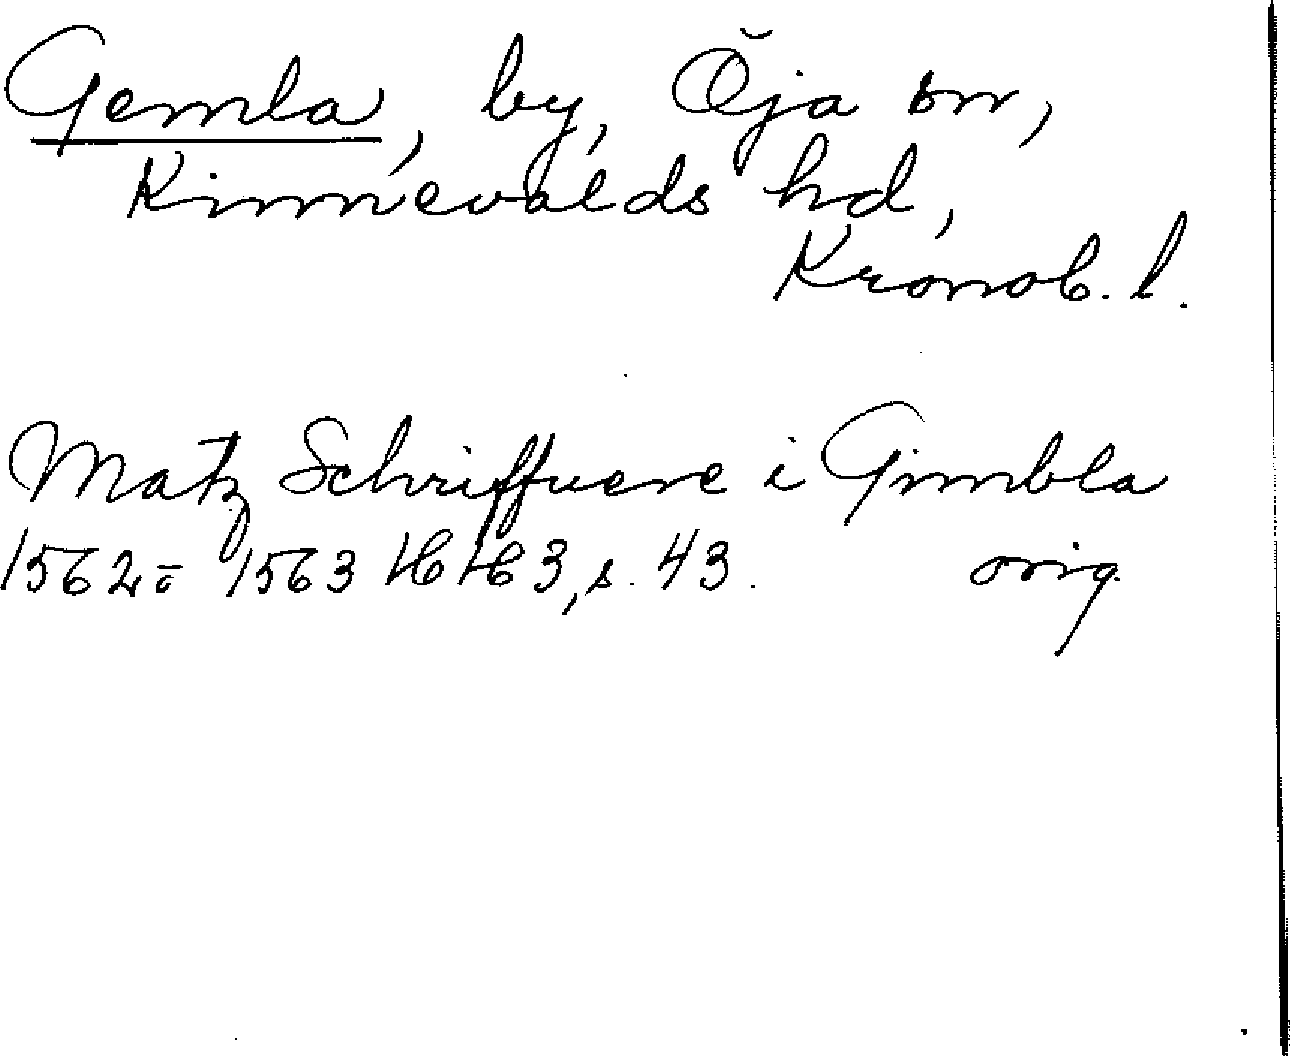 Gemla, by, Öja sn,
Kinnevalds hd,
Kronob. l.
Matz Schriffuere i Gimbla
1562 o 1563 HH 3, s. 43. orig